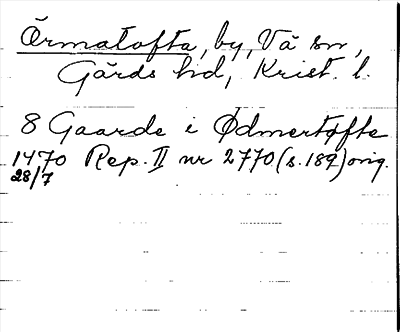 Örmatofta, by, Vä sn,
Gärds hd, Krist. l.
8 Gaarde i Ødmertofte
1470 Rep. II nr 2770 (s. 189) orig.
28/7